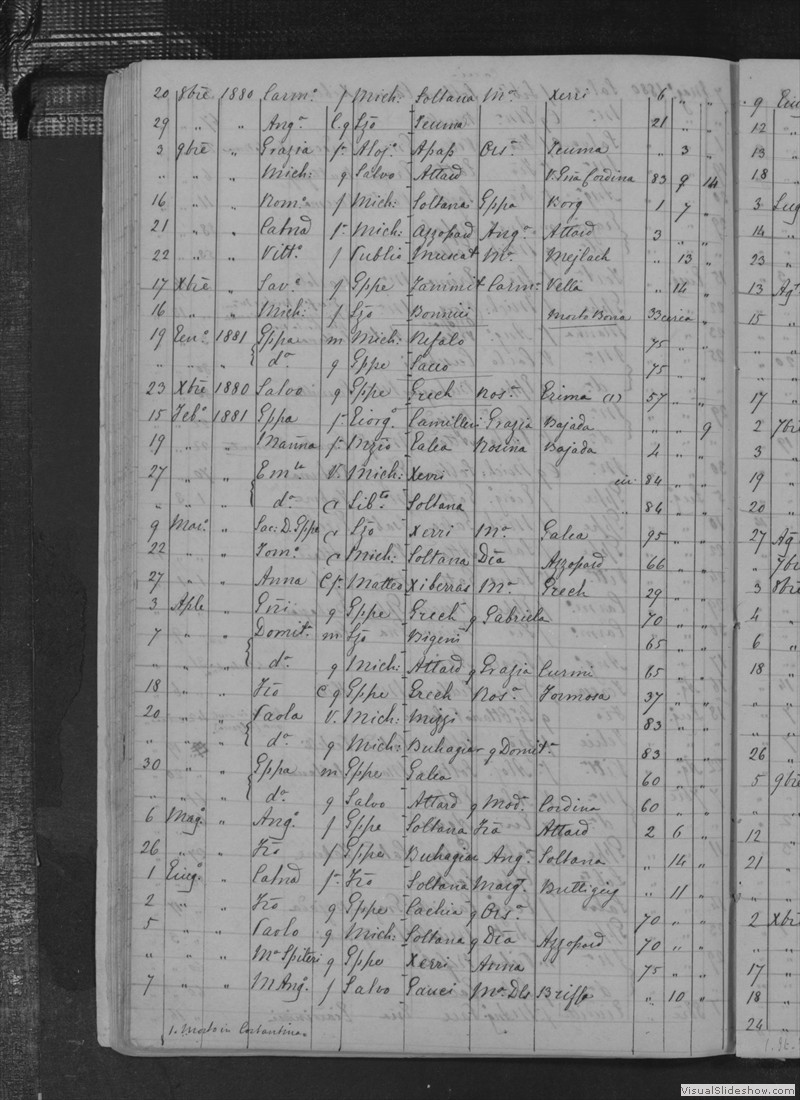 20 8bre 1880 Carm.o f Mich: Soltana M.a Xerri 6 " "
29 " " Ang.a C.g Ljo Xeuma 21 " "
3 9bre " Grazia f. Aloj.o Apap Ors.a Xeuma " 3 "
" " " Mich: g Salvo Attard Cordina 83 9 14
16 " " Rom.o f Mich: Soltana Gppa Borg 1 7 "
21 " " Catnd f. Mich: Azzopard Ang.a Attard 3 " "
22 " " Vitt.o f Publio Muscat M.a Mejlach " 13 "
17 Xbre " Sav.o g Gppe Zammit Carm: Vella " 14 "
16 " " Mich: f Ljo Bonnici Morto Bona 33 circa "
19 Gen.o 1881 Gppa m Mich: Refalo 75 " "
" " " d.a g Gppe Sacco 75 " "
23 Xbre 1880 Salvo g Gppe Grech Ros.a Erima (1) 57 " "
15 Feb.o 1881 Gppa f. Giorg.o Camilleri Grazia Bajada " " 9
19 " " Marina f. Nzio Galea Rosina Bajada 4 " "
27 " " Em.la V. Mich: Xerri cir 84 " "
" " " d.a Lib.to Soltana " 84 " "
9 Mar.o " Sac: D. Gppe Ljo Xerri M.a Galea 95 " "
22 " " Tom.o Mich: Soltana Dia Azzopard 66 " "
27 " " Anna C f. Matteo Xiberras M.a Grech 29 " "
3 Aple " g Gppe Grech g Gabriela 70 " "
7 " " Domit.a m Ljo Bigeni 65 " "
" " " d.a g Mich: Attard g Grazia Curmi 65 " "
18 " " Fco C g Gppe Grech Ros.a Formosa 37 " "
20 " " Paola V. Mich: Mizzi 83 " "
" " " d.a g Mich: Buhagiar g Domit.a 83 " "
30 " " Gppa m Gppe Galea 60 " "
" " " d.a g Salvo Attard g Mod.a Cordina 60 " "
6 Mag.o " Ang.o f Gppe Soltana Fca Attard 2 6 "
26 " " Fco f Gppe Buhagiar Ang.a Soltana " 14 "
1 Giug.o " Catnd f. Fco Soltana Marg.a Buttigieg " 11 "
2 " " Fco g Gppe Cachia g Ors.a 70 " "
5 " " Paolo g Mich: Soltana g Dia Azzopard 70 " "
" " " M.a Spiteri g Gppe Xerri Anna 75 " "
7 " " M Ang.a f Salvo Gauci M.a Dls Briffa " 10 "
1. Morto in Costantina
9 Giu
12 "
13 "
18 "
3 Lug
14 "
23 "
13 Ag
15 "
17 "
2 7br
3 "
19 "
20 "
27 Ag
" 7br
3 8bre
4 "
6 "
18 "
26 "
5 9bre
12 "
21 "
2 Xbr
17 "
18 "
24 "
VisualSlideshow.com